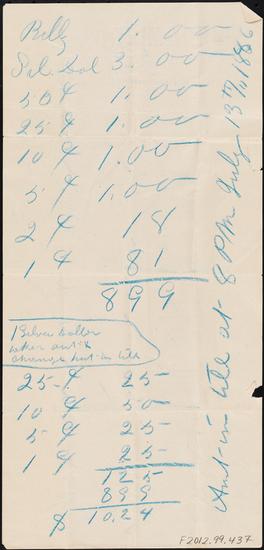 Bills 1.00
Sil. Dol 3.00
50¢ 1.00
25¢ 1.00
10¢ 1.00
5¢ 1.00
2¢ 18
1¢ 81
899
1 Silver Dollar
taken out &
change put in till
25¢ 25
10¢ 50
5¢ 25
1¢ 25
125
899
$ 10.24
Amt in till at 8 P.M. July 13th, 1886
F2012.99.437